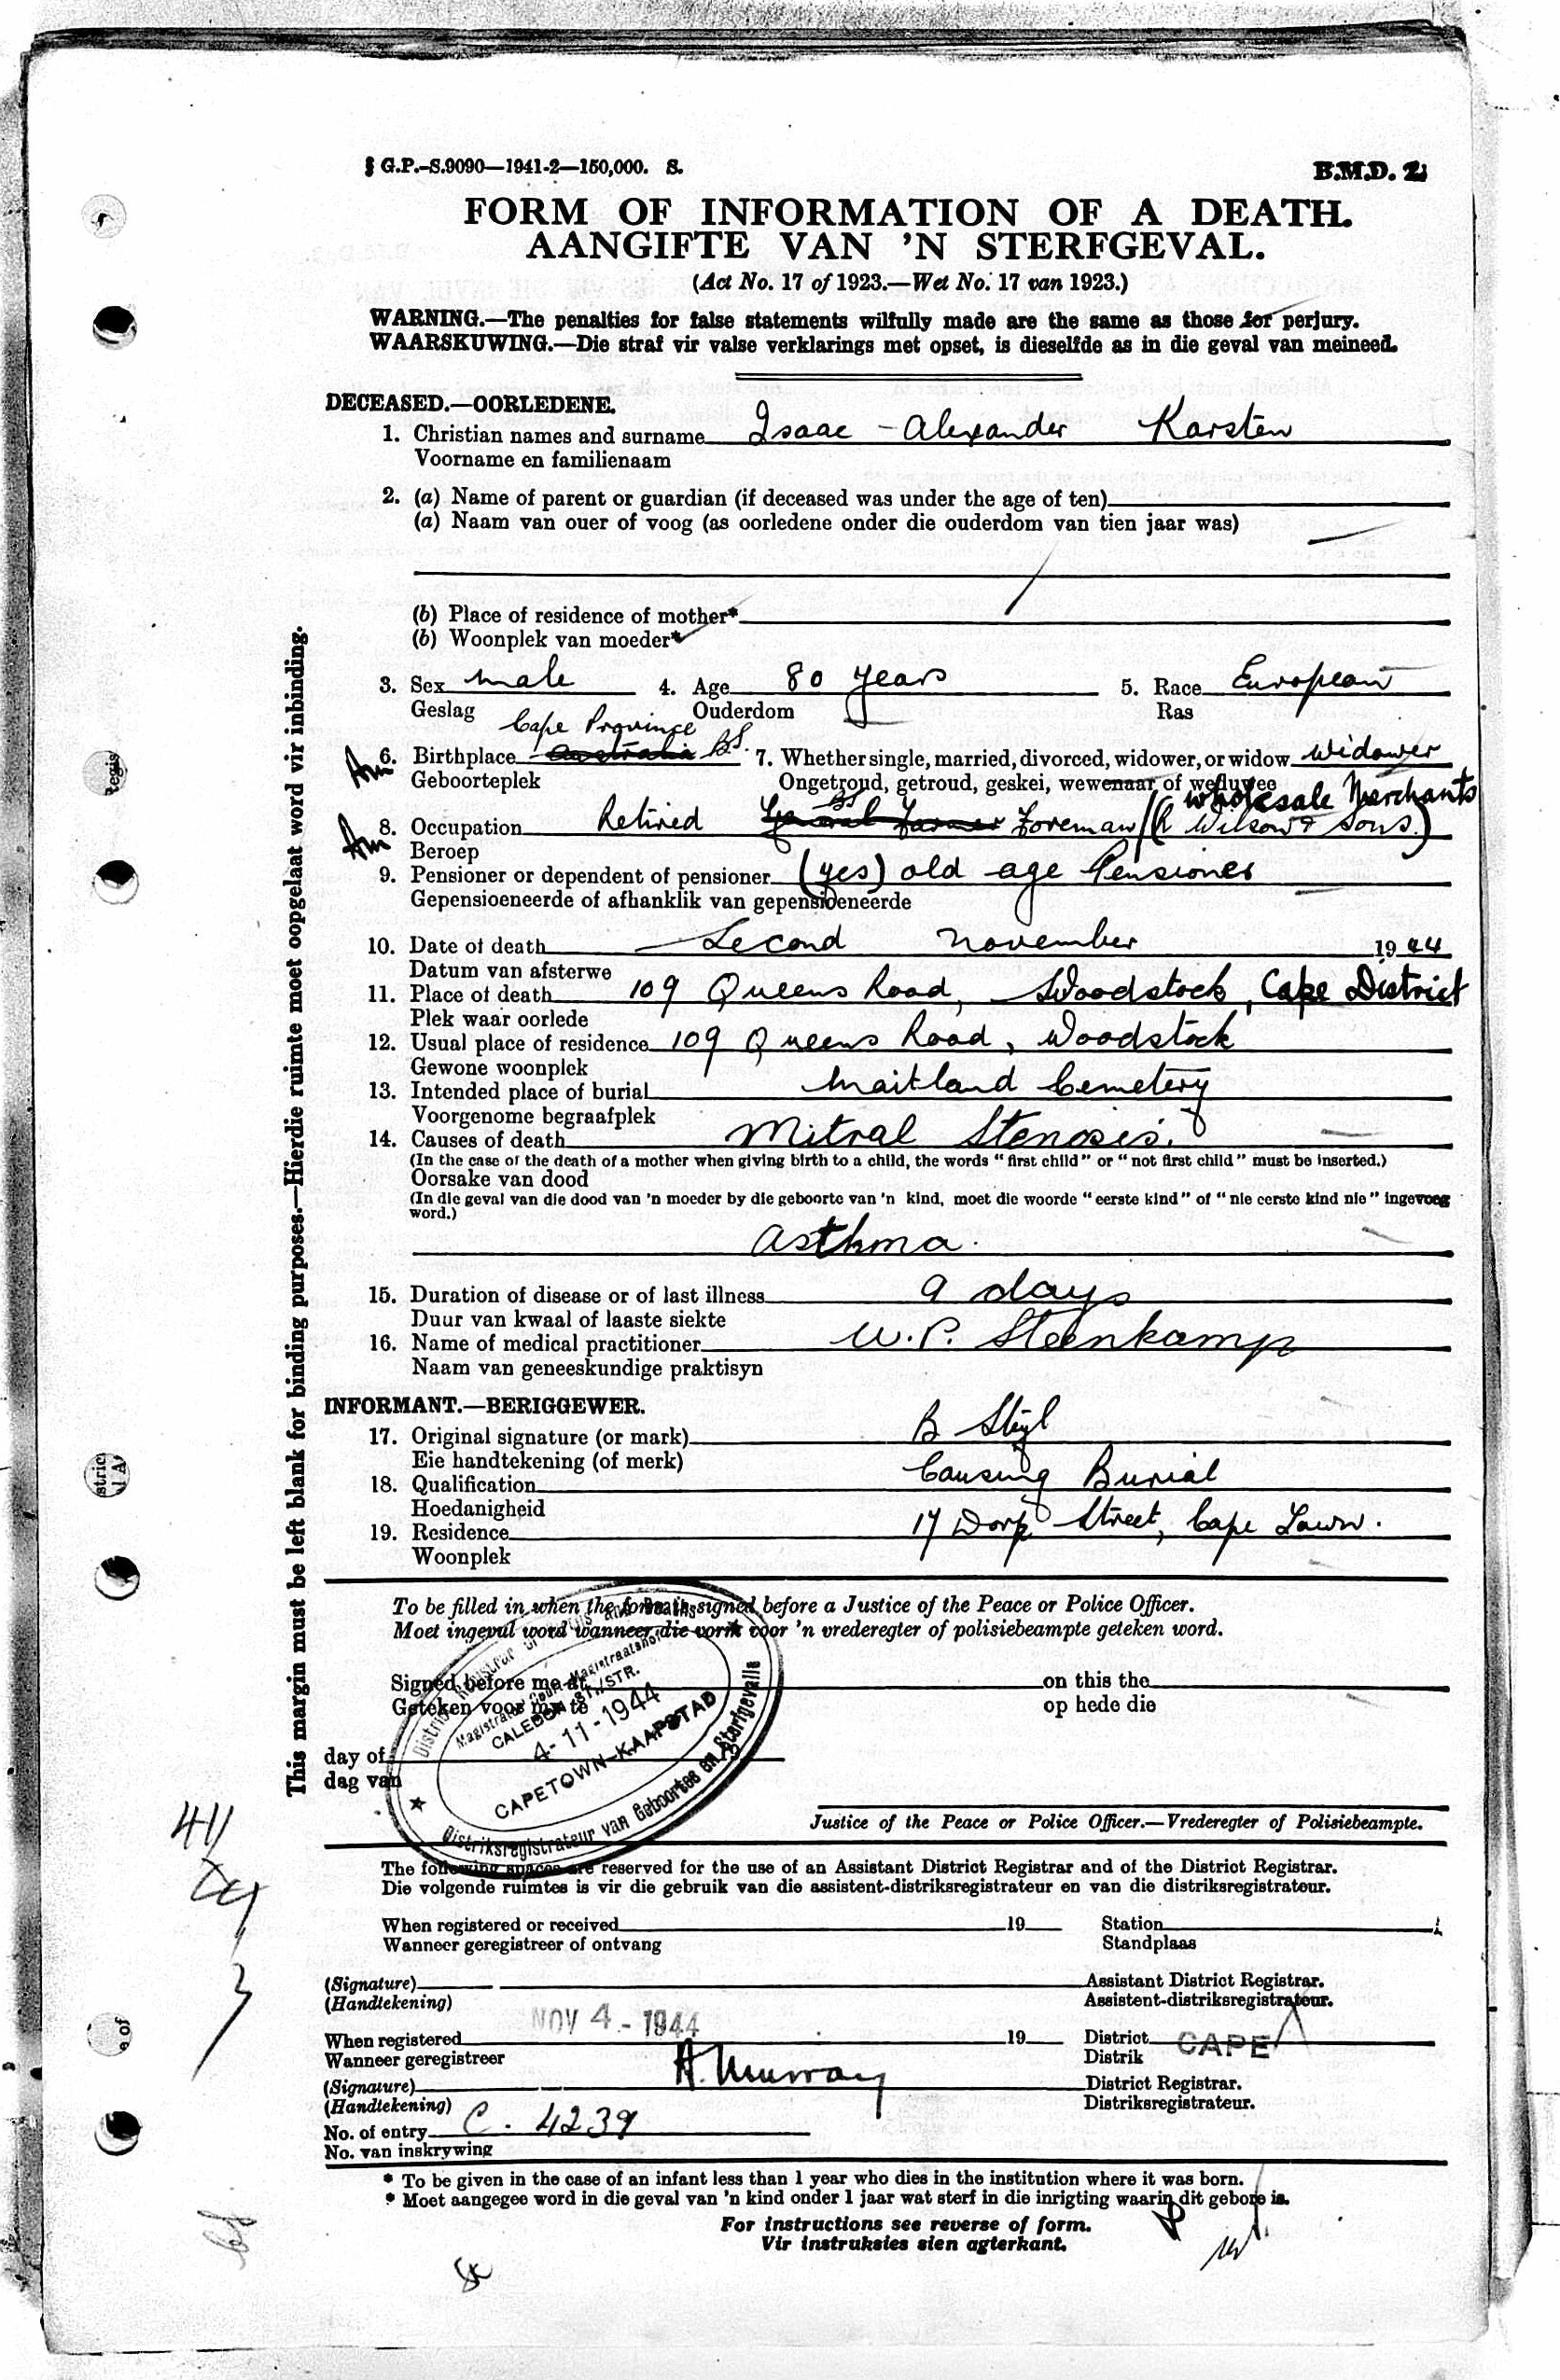 § G.P.-S.9090—1941-2—150,000. S.
B.M.D. 2
FORM OF INFORMATION OF A DEATH.
AANGIFTE VAN 'N STERFGEVAL.
(Act No. 17 of 1923.—Wet No. 17 van 1923.)
WARNING.—The penalties for false statements wilfully made are the same as those for perjury.
WAARSKUWING.—Die straf vir valse verklarings met opset, is dieselfde as in die geval van meineed.
DECEASED.—OORLEDENE.
1. Christian names and surname Isaac - Alexander Karsten
Voorname en familienaam
2. (a) Name of parent or guardian (if deceased was under the age of ten)
(a) Naam van ouer of voog (as oorledene onder die ouderdom van tien jaar was)
(b) Place of residence of mother*
(b) Woonplek van moeder*
3. Sex male 4. Age 80 years 5. Race European
Geslag Ouderdom Ras
Cape Province
6. Birthplace Australia B.S. 7. Whether single, married, divorced, widower, or widow widower
Geboorteplek Ongetroud, getroud, geskei, wewenaar of weduwee
wholesale Merchants
8. Occupation Retired General Farmer Foreman (R Wilson & Sons.)
Beroep
9. Pensioner or dependent of pensioner (yes) old age Pensioner
Gepensioeneerde of afhanklik van gepensioeneerde
10. Date of death Second November 1944
Datum van afsterwe
11. Place of death 109 Queens Road, Woodstock, Cape District
Plek waar oorlede
12. Usual place of residence 109 Queens Road, Woodstock
Gewone woonplek
13. Intended place of burial Maitland Cemetery
Voorgenome begraafplek
14. Causes of death Mitral Stenosis.
(In the case of the death of a mother when giving birth to a child, the words "first child" or "not first child" must be inserted.)
Oorsake van dood
(In die geval van die dood van 'n moeder by die geboorte van 'n kind, moet die woorde "eerste kind" of "nie eerste kind nie" ingevoeg
word.)
Asthma.
15. Duration of disease or of last illness 9 days
Duur van kwaal of laaste siekte
16. Name of medical practitioner W. P. Steenkamp
Naam van geneeskundige praktisyn
INFORMANT.—BERIGGEWER.
17. Original signature (or mark) B Steyl
Eie handtekening (of merk)
18. Qualification Causing Burial
Hoedanigheid
19. Residence 17 Dorp Street, Cape Town.
Woonplek
This margin must be left blank for binding purposes.—Hierdie ruimte moet oopgelaat word vir inbinding.
To be filled in when the form is signed before a Justice of the Peace or Police Officer.
Moet ingevul word wanneer die vorm voor 'n vrederegter of polisiebeampte geteken word.
Signed before me at on this the
Geteken voor my te op hede die
day of
dag van
District Registrar of Births and Deaths
Magistrate's Court - Magistraatshof
CALEDON ST./STR.
4-11-1944
CAPETOWN-KAAPSTAD
Distriksregistrateur van Geboortes en Sterfgevalle
Justice of the Peace or Police Officer.—Vrederegter of Polisiebeampte.
The following spaces are reserved for the use of an Assistant District Registrar and of the District Registrar.
Die volgende ruimtes is vir die gebruik van die assistent-distriksregistrateur en van die distriksregistrateur.
When registered or received 19 Station
Wanneer geregistreer of ontvang Standplaas
(Signature) Assistant District Registrar.
(Handtekening) Assistent-distriksregistrateur.
NOV 4 - 1944
When registered 19 District CAPE
Wanneer geregistreer Distrik
(Signature) A. Murray District Registrar.
(Handtekening) Distriksregistrateur.
No. of entry C. 4239
No. van inskrywing
* To be given in the case of an infant less than 1 year who dies in the institution where it was born.
* Moet aangegee word in die geval van 'n kind onder 1 jaar wat sterf in die inrigting waarin dit gebore is.
For instructions see reverse of form.
Vir instruksies sien agterkant.